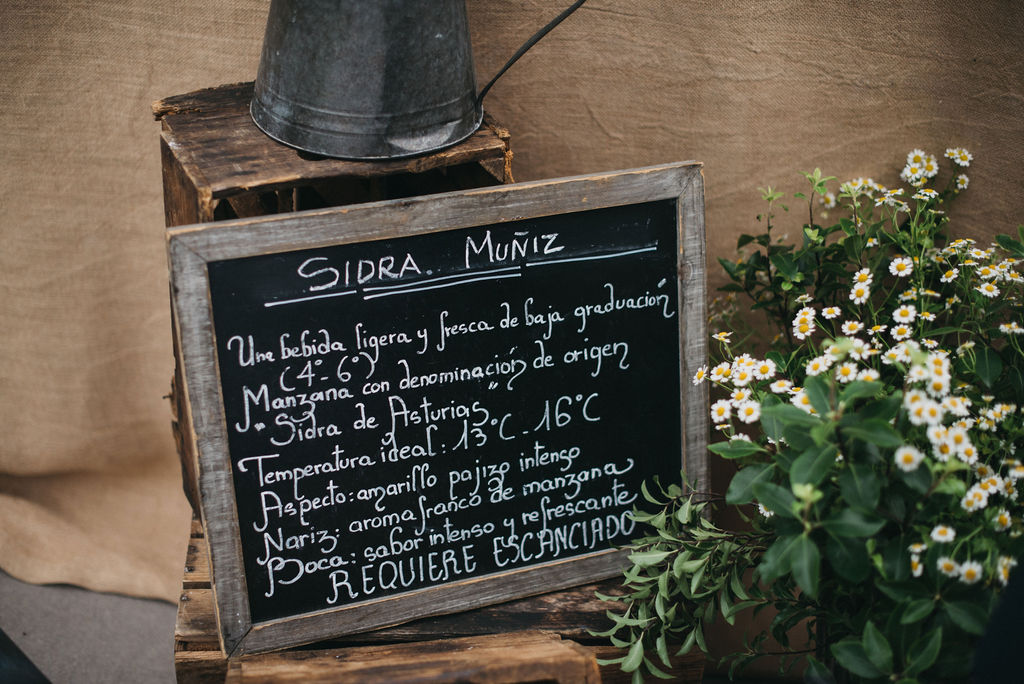 SIDRA. MUÑIZ
Una bebida ligera y fresca de baja graduación
(4°-6°)
Manzana con denominación de origen
"Sidra de Asturias"
Temperatura ideal: 13°C - 16°C
Aspecto: amarillo pajizo intenso
Nariz: aroma franco de manzana
Boca: sabor intenso y refrescante
REQUIERE ESCANCIADO